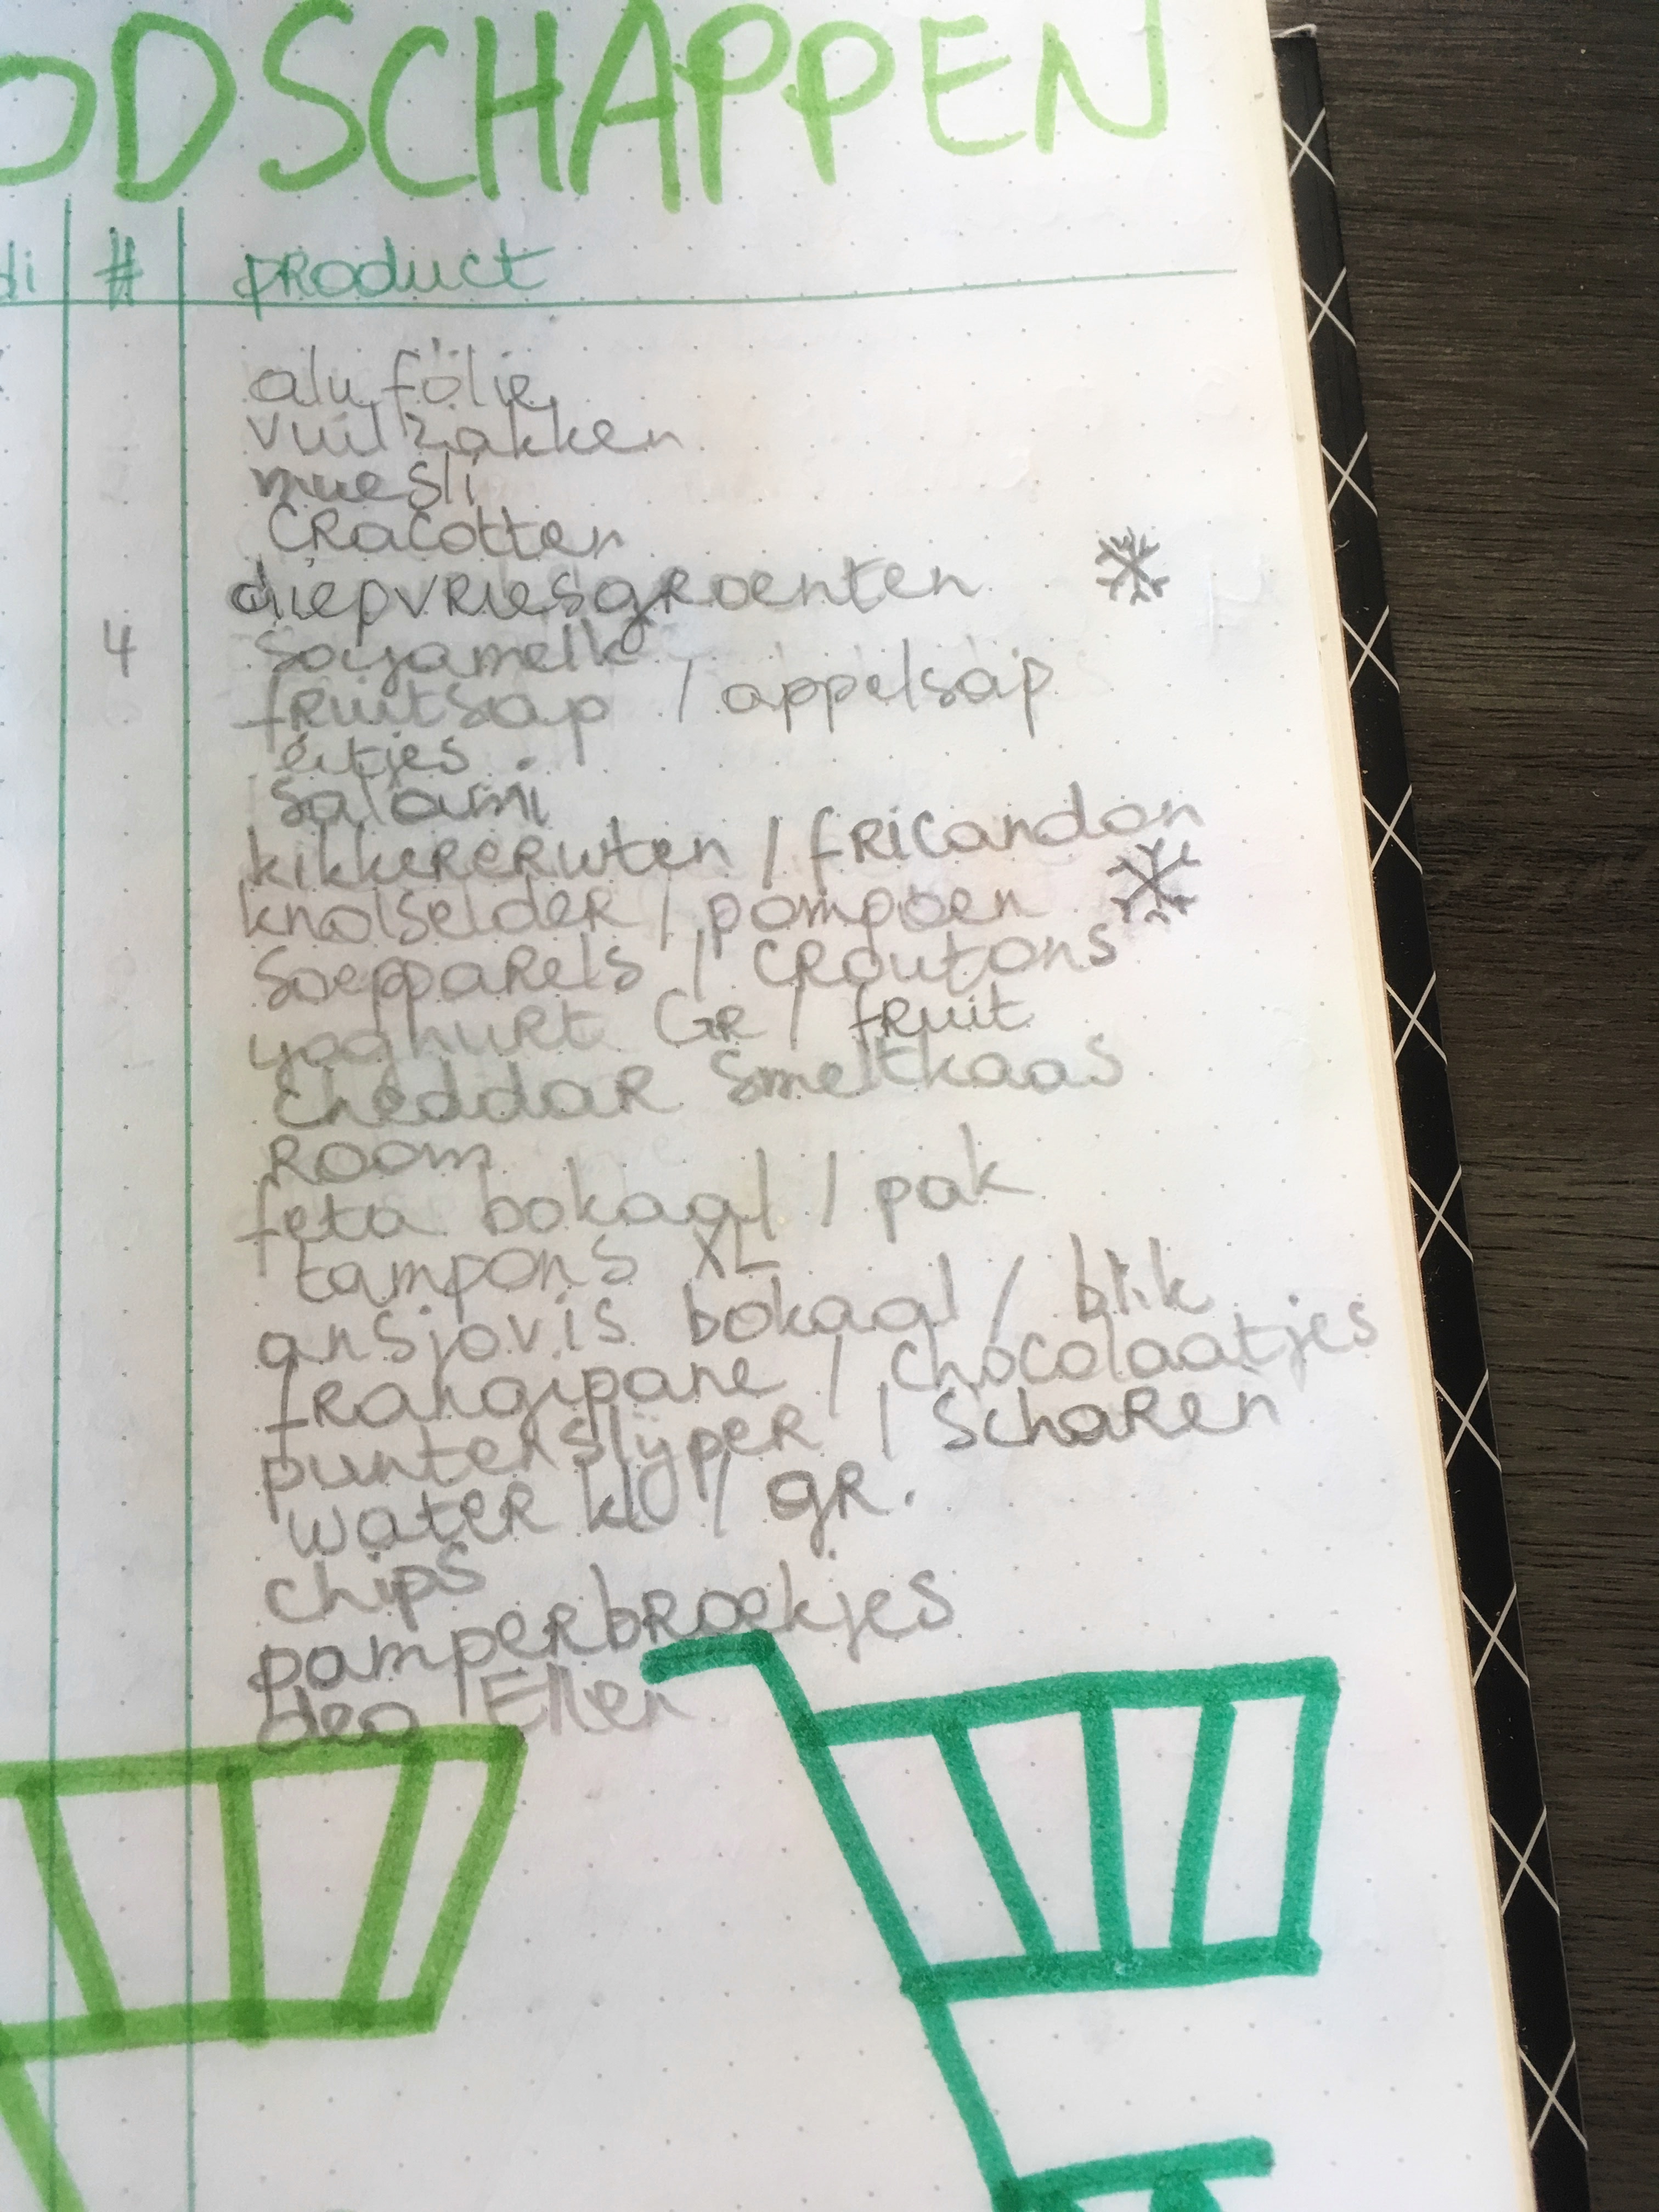 ODSCHAPPEN
di # product
alu folie
vuilzakken
muesli
cracotten
diepvriesgroenten
4 soyamelk
fruitsap / appelsap
eitjes
salami
kikkererwten / fricandon
knolselder / pompoen
soepparels / croutons
yoghurt GR / fruit
cheddar smeltkaas
room
feta bokaal / pak
tampons XL
ansjovis bokaal / blik
frangipane / chocolaatjes
puntenslyper / scharen
water kl / gr.
chips
pamperbroekjes
deo Ellen